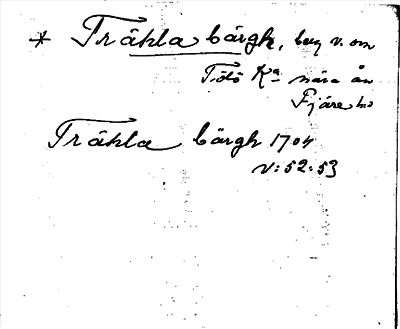 * Träkla bärgh, berg v. om
Tölö Ka nära ån
Fjäre hd
Träkla bärgh 1704
v: 52. 53